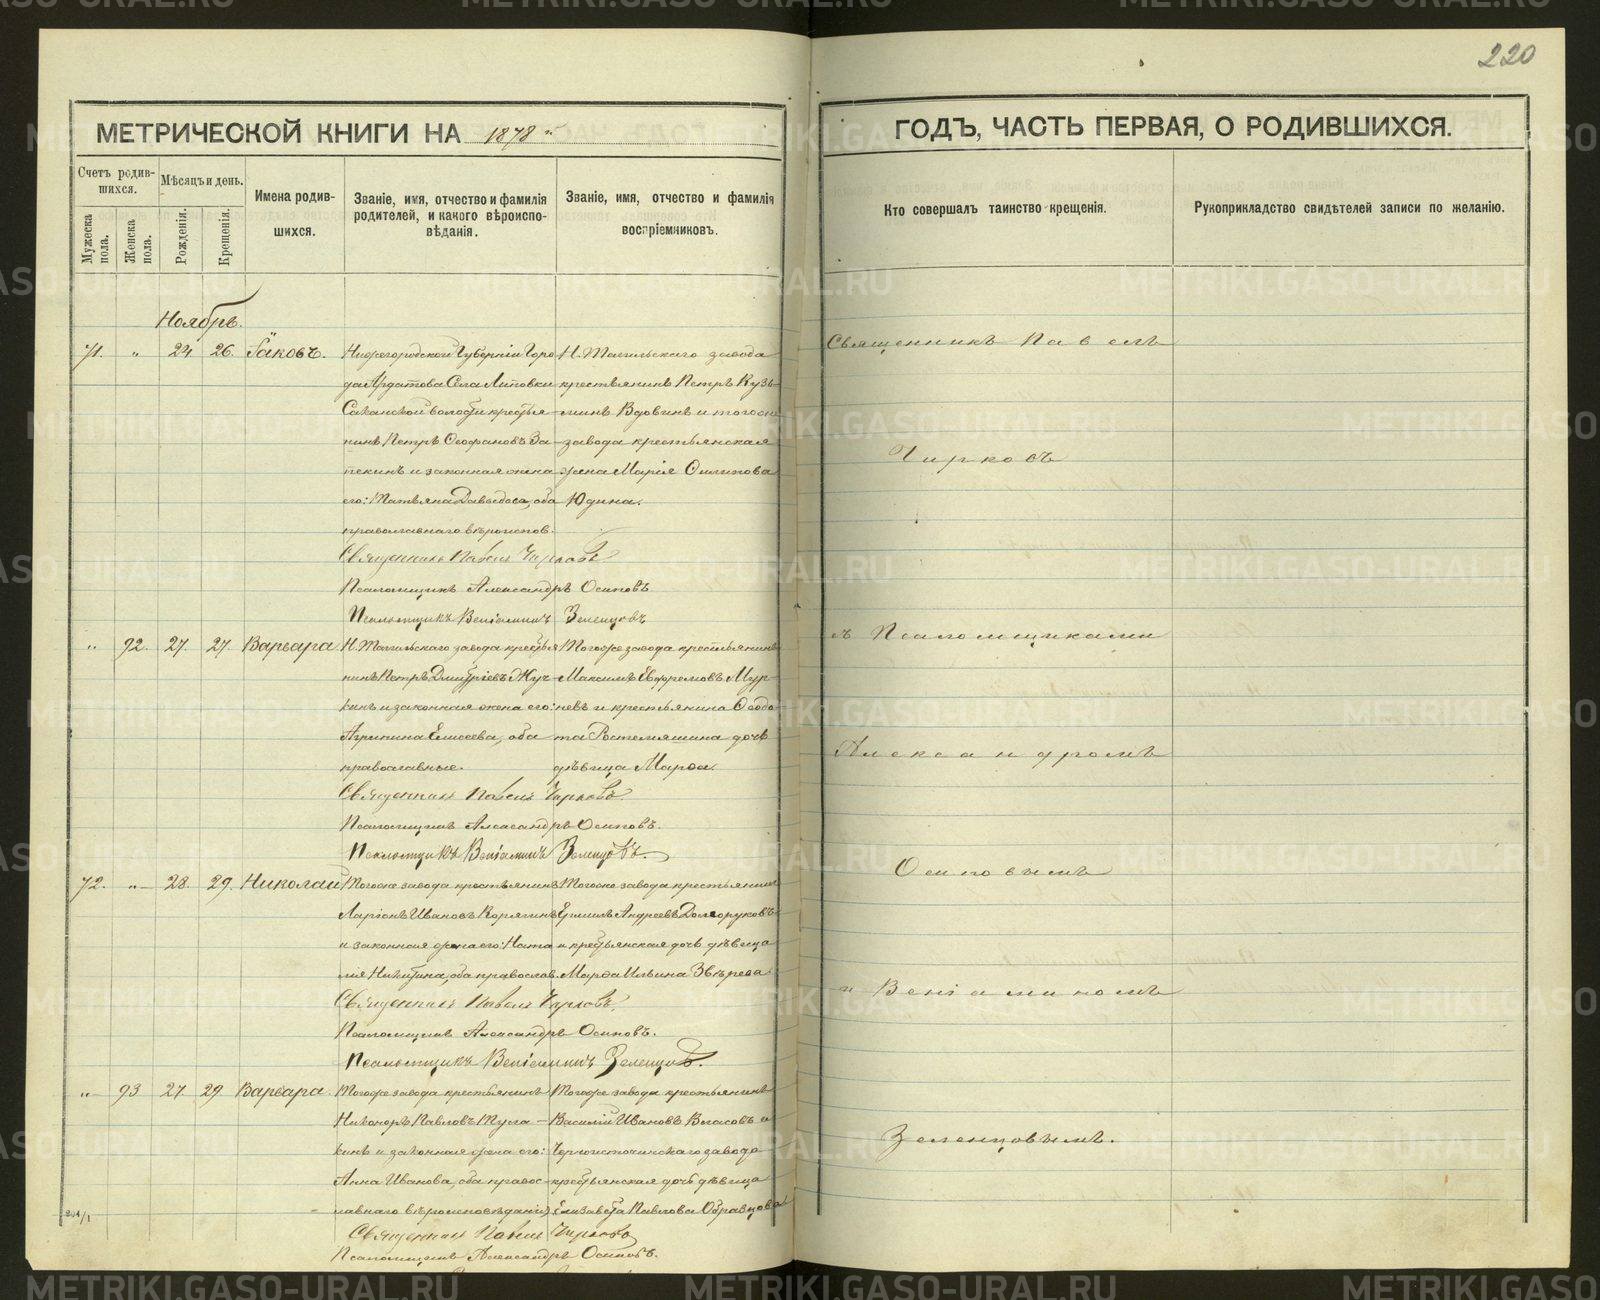 220
МЕТРИЧЕСКОЙ КНИГИ НА 1878 й
ГОДЪ, ЧАСТЬ ПЕРВАЯ, О РОДИВШИХСЯ.
Счетъ родив-
шихся.
Мужеска пола.
Женска пола.
Мѣсяцъ и день.
Рожденія.
Крещенія.
Имена родив-
шихся.
Званіе, имя, отчество и фамилія
родителей, и какого вѣроиспо-
вѣданія.
Званіе, имя, отчество и фамилія
воспріемниковъ.
Кто совершалъ таинство крещенія.
Рукоприкладство свидѣтелей записи по желанію.
Ноябрь.
71. „ 24 26. Іаковъ.
Нижегородской Губерніи Горо
да Ардатова Села Липовки
волости крестья-
нинъ Петръ Ѳеофановъ За-
пекинъ и законная жена
его: Татьяна Давыдова, оба
православнаго вѣроиспов.
Н. Тагильскаго завода
крестьянинъ Петръ Кузь-
минъ Вдовинъ и тогоже
завода крестьянская
жена Марія
Юдина.
Священникъ Павелъ Чирковъ
Псаломщикъ Александръ Осиповъ
Псаломщикъ Веніаминъ Зеленцовъ
„ 92. 27. 27. Варвара
Н. Тагильскаго завода крестья
нинъ Петръ Дмитріевъ Жуч-
кинъ и законная жена его:
Агрипина Елисеева, оба
православные.
Тогоже завода крестьянинъ
Максимъ Ефремовъ Мур-
невъ и крестьянина Ѳедо
та дочь
дѣвица Марѳа.
Священникъ Павелъ Чирковъ.
Псаломщикъ Александръ Осиповъ.
Псаломщикъ Веніаминъ Зеленцовъ.
72. „ 28. 29. Николай
Тогоже завода крестьянинъ
Ларіонъ Ивановъ Корягинъ
и законная жена его: Ната
лія Никитина, оба православ.
Тогоже завода крестьянинъ
Ермилъ Андреевъ Долгоруковъ
и крестьянская дочь дѣвица
Марѳа Ильина Звѣрева
Священникъ Павелъ Чирковъ.
Псаломщикъ Александръ Осиповъ.
Псаломщикъ Веніаминъ Зеленцовъ.
„ 93 27. 29. Варвара.
Тогоже завода крестьянинъ
Никаноръ Павловъ Туга-
кинъ и законная жена его:
Анна Иванова, оба правос-
лавнаго вѣроисповѣданія)
Тогоже завода крестьянинъ
Василій Ивановъ Власовъ и
Черноисточинскаго завода
крестьянская дочь дѣвица
Елизавета Павлова Образцова
Священникъ Павелъ Чирковъ
Псаломщикъ Александръ Осиповъ.
Священникъ Павелъ
Чирковъ
съ Псаломщиками
Александромъ
Осиповымъ
и Веніаминомъ
Зеленцовымъ.
METRIKI.GASO-URAL.RU